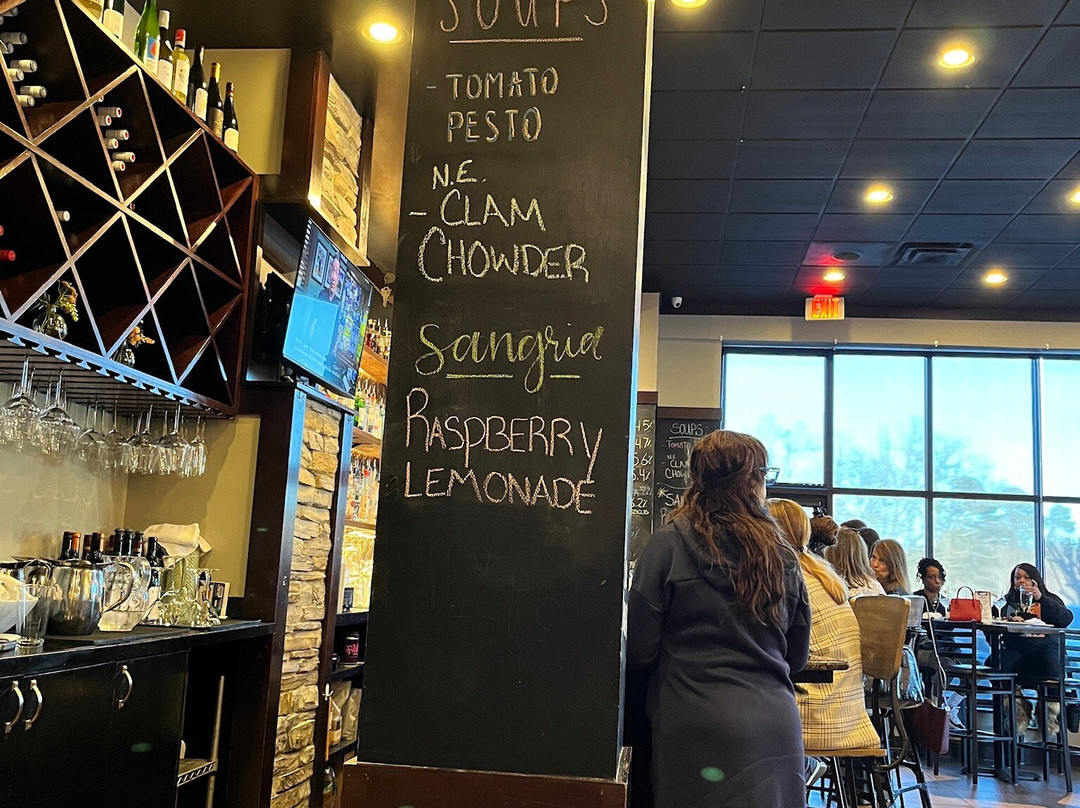 SOUPS
- TOMATO
PESTO
N.E.
- CLAM
CHOWDER
Sangria
RASPBERRY
LEMONADE
EXIT
SOUPS
- TOMATO
N.E.
- CLAM